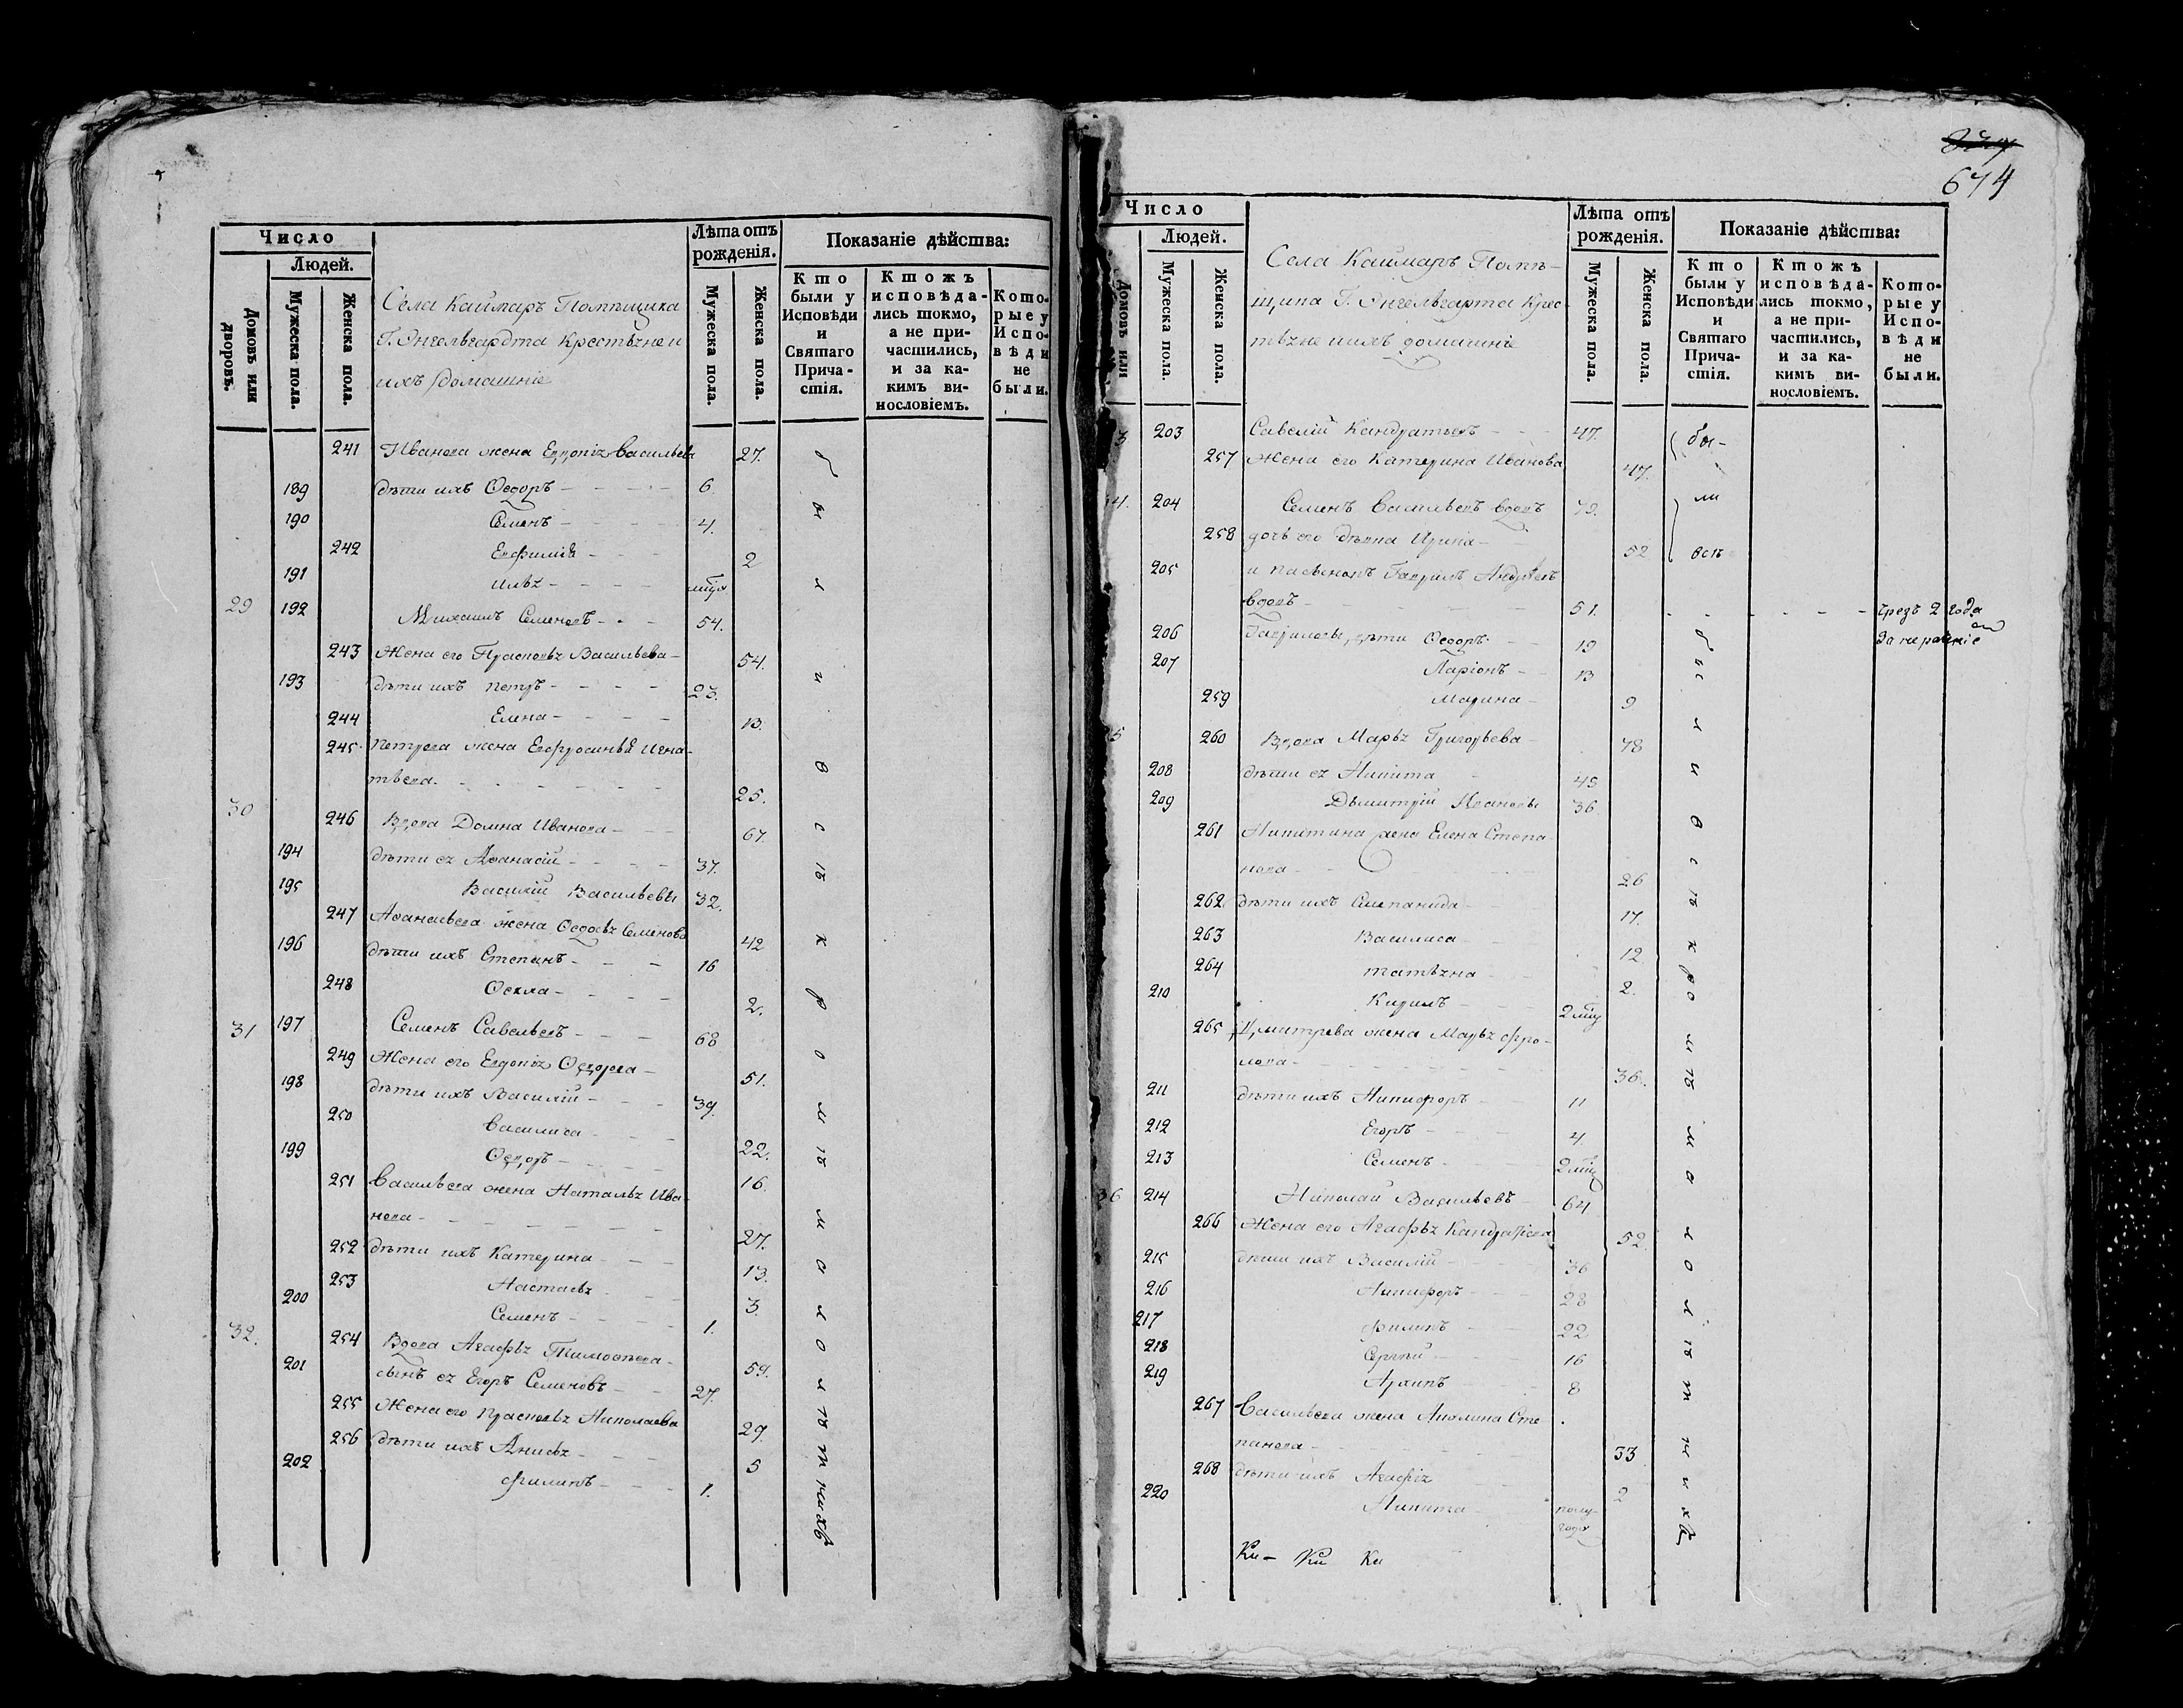 Число
Людей.
Домовъ или дворовъ.
Мужеска пола.
Женска пола.
Села Каймаръ Помѣщика
Г. Энгельгардта Крестьяне и
ихъ домашніе
Лѣта отъ рожденія.
Мужеска пола.
Женска пола.
Показаніе дѣйства:
Кто были у Исповѣди и Святаго Причастія.
Ктожъ исповѣдались токмо, а не причастились, и за какимъ винословіемъ.
Которые у Исповѣди не были.
241 Иванова жена Евдокія Васильева 27.
189 дѣти ихъ Ѳедоръ 6
190 Семенъ 4.
242 Евфимія 2
191 Илья
29 192 Михаилъ Семеновъ 54.
243 Жена его Прасковья Васильева 54.
193 дѣти ихъ Петръ 23.
244 Елена 13.
245 Петрова жена Ефросинья Игна-
тьева. 25.
30 246 Вдова Домна Иванова 67.
194 дѣти ея Аѳанасій 37.
195 Василій Васильевы 32.
247 Аѳанасьева жена Ѳедосья Семенова 42
196 дѣти ихъ Степанъ 16
248 Ѳекла 2.
31 197 Семенъ Савельевъ 68
249 Жена его Евдокія Ѳедорова 51.
198 дѣти ихъ Василій 39.
250 Василиса 22.
199 Ѳедоръ 16.
251 Васильева жена Наталья Ива-
нова 27.
252 дѣти ихъ Катерина 13.
253 Настасья 3.
200 Семенъ 1.
32. 254 Вдова Агафья Тимоѳеева 59.
201 сынъ ея Егоръ Семеновъ 27.
255 Жена его Прасковья Николаева 29.
256 дѣти ихъ Анисья 5
202 Филипъ 1.
были всѣ кромѣ малолѣтнихъ
674
Число
Людей.
Домовъ или
Мужеска пола.
Женска пола.
Села Каймаръ Помѣ-
щика Г. Энгельгарта Крес-
тьяне и ихъ домашніе
Лѣта отъ рожденія.
Мужеска пола.
Женска пола.
Показаніе дѣйства:
Кто были у Исповѣди и Святаго Причастія.
Ктожъ исповѣдались токмо, а не причастились, и за какимъ винословіемъ.
Которые у Исповѣди не были.
3 203 Савелій Кандратьевъ 47. бы-
257 Жена его Катерина Иванова 47.
4. 204 Семенъ Васильевъ вдовъ 79. ли
258 дочь его дѣвка Ирина 52 всѣ
205 и пасынокъ Гаврилъ Андреевъ
вдовъ 51. чрезъ 2 года
за нерадѣніе
206 Гавриловы дѣти Ѳедоръ 19
207 Ларіонъ 13
259 Марина 9
5 260 Вдова Марья Григорьева 78
208 дѣти ея Никита 45
209 Дьмитрій Ивановы 36
261 Никитина жена Елена Степа-
нова 26
262 дѣти ихъ Степанида 17.
263 Василиса 12
264 Татьяна 2.
210 Кирилъ
265 Дмитрева жена Марья Фро-
лова 36.
211 дѣти ихъ Никифоръ 11
212 Егоръ 4
213 Семенъ
36 214 Николай Васильевъ 64
266 Жена его Агафья Кандратьева 52.
215 дѣти ихъ Василій 36
216 Никифоръ 28
217 Филипъ 22
218 Сергѣй 16
219 Архипъ 8
267 Васильева жена Акилина Сте-
панова 33
268 дѣти ихъ Агафія 2
220 Никита полу-
года
были всѣ кромѣ малолѣтнихъ
Ки- Ки Ки